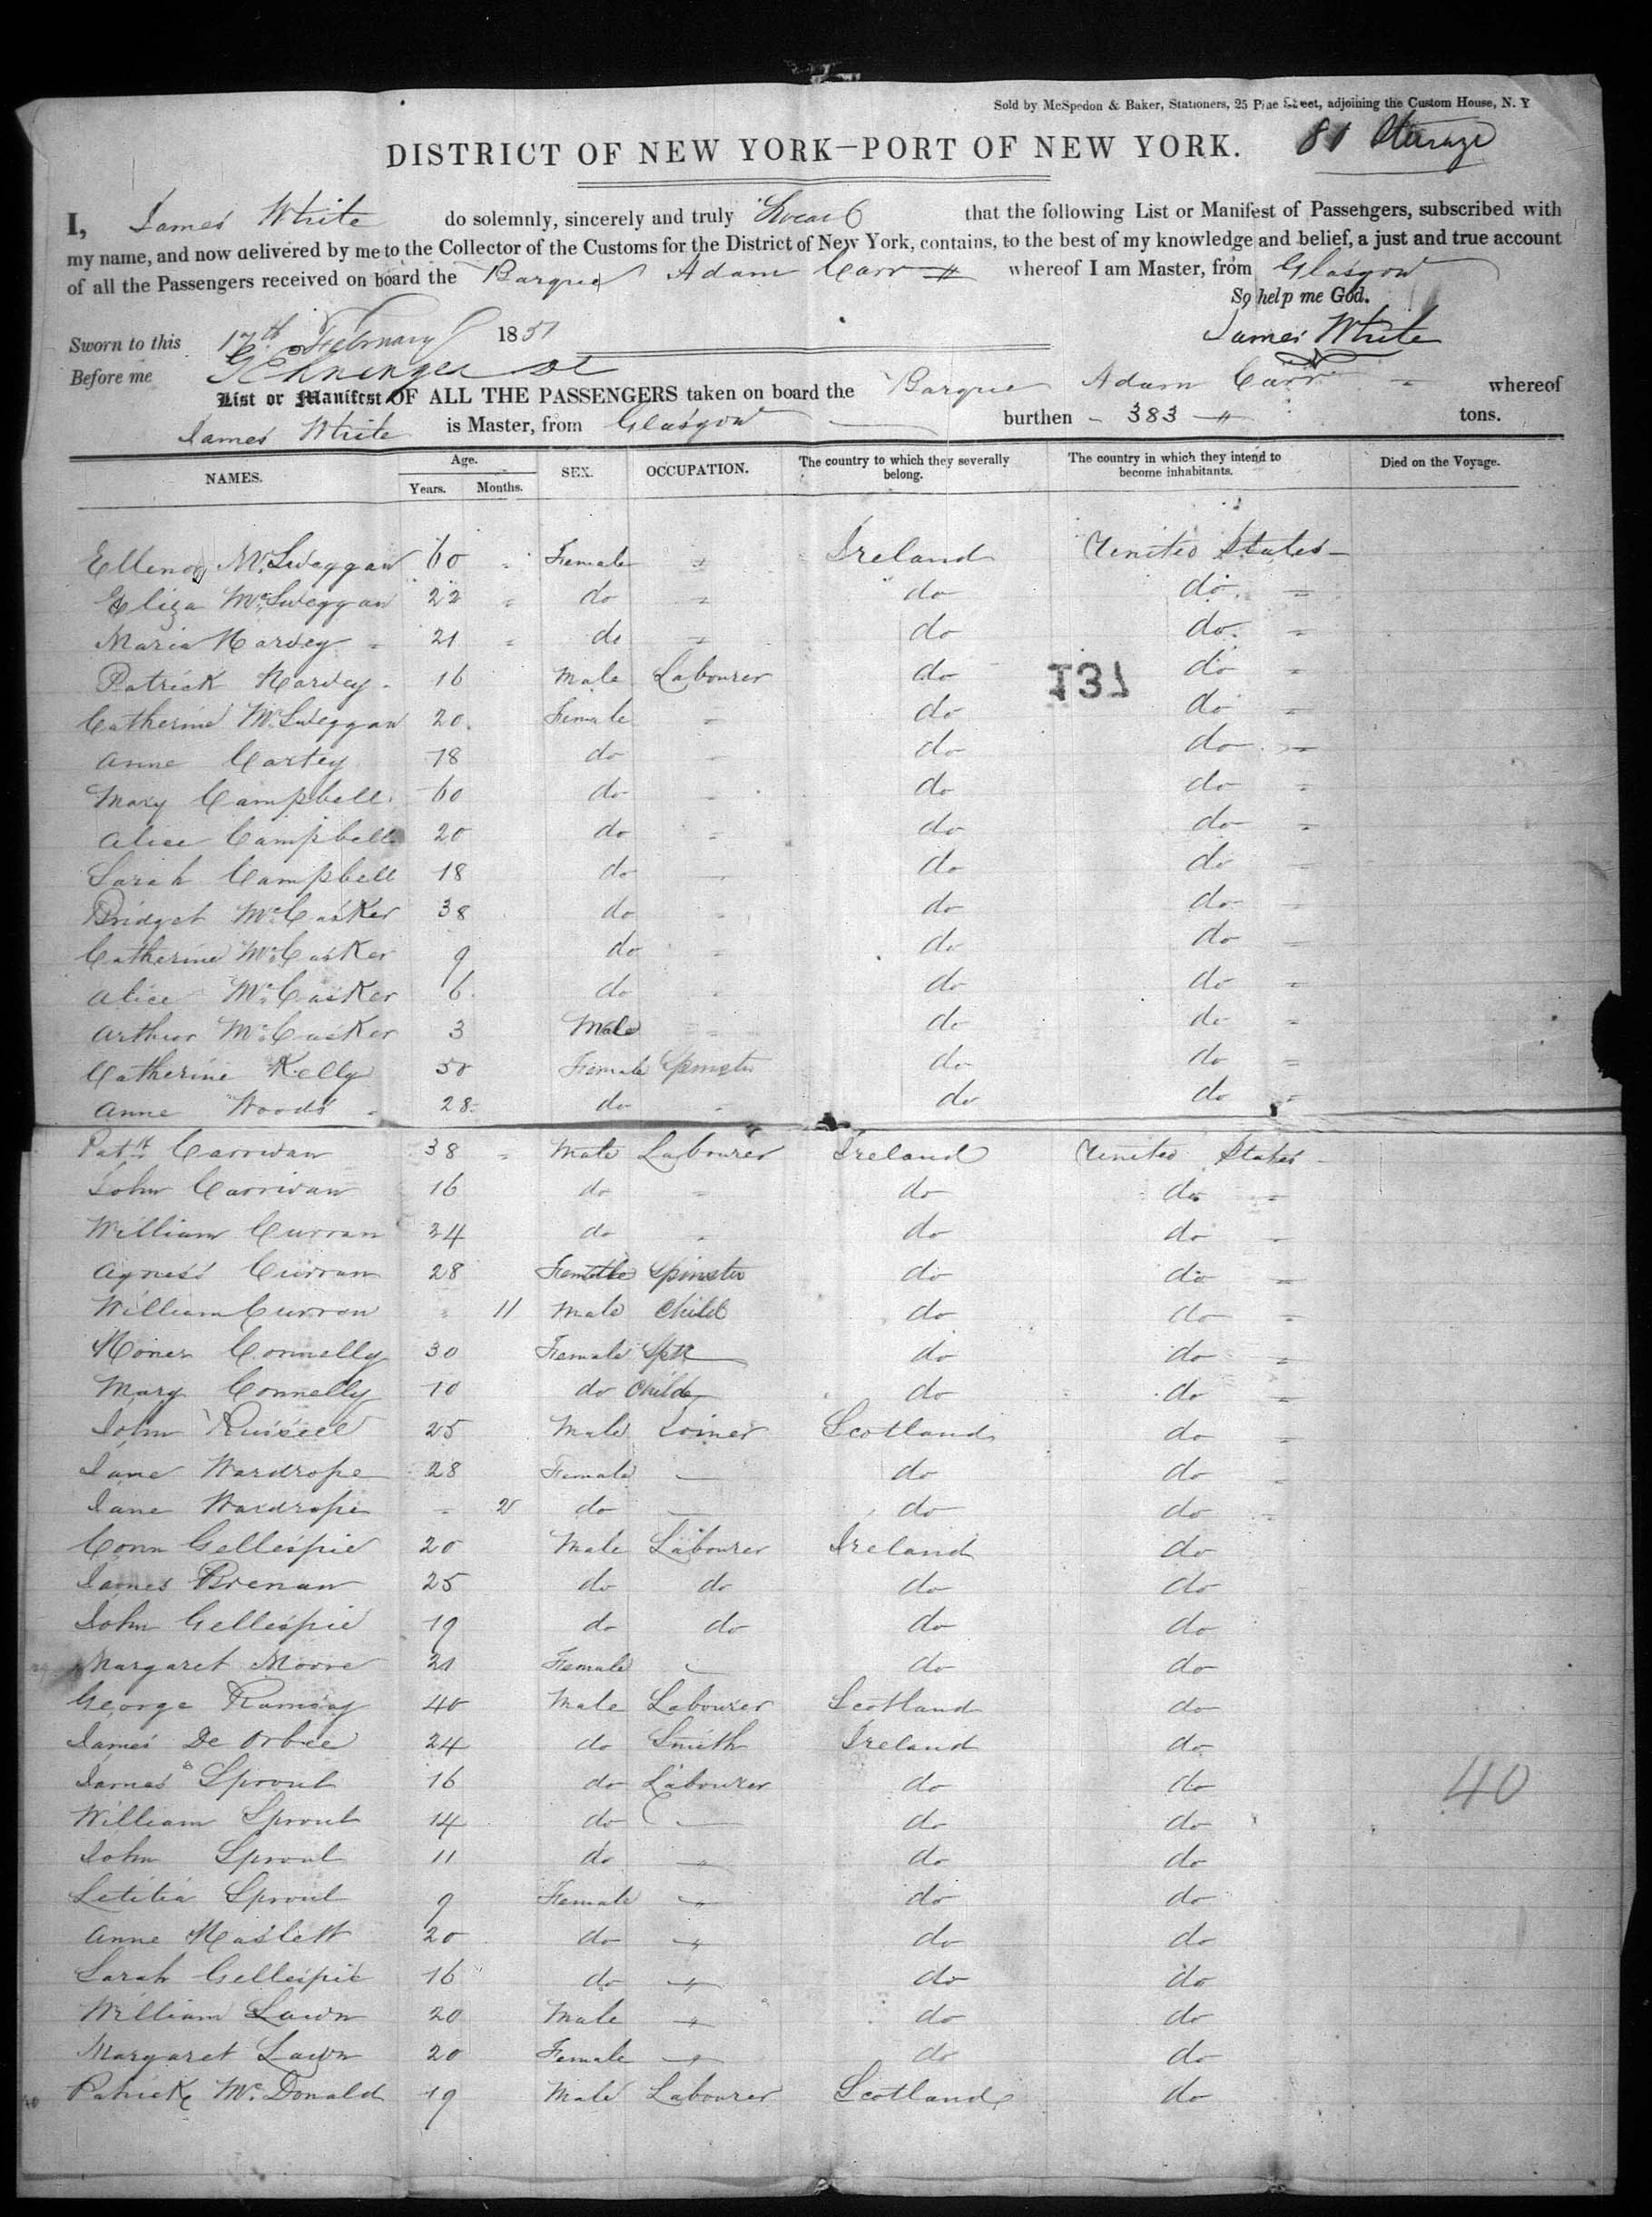 Sold by McSpedon & Baker, Stationers, 25 Pine Street, adjoining the Custom House, N. Y
DISTRICT OF NEW YORK—PORT OF NEW YORK. 81 Steerage
I, James White do solemnly, sincerely and truly Swear that the following List or Manifest of Passengers, subscribed with
my name, and now delivered by me to the Collector of the Customs for the District of New York, contains, to the best of my knowledge and belief, a just and true account
of all the Passengers received on board the Barque Adam Carr whereof I am Master, from Glasgow
So help me God.
Sworn to this 17th February 1851 James White
Before me
List or Manifest OF ALL THE PASSENGERS taken on board the Barque Adam Carr whereof
James White is Master, from Glasgow burthen 383 tons.
NAMES. Age. Years. Months. SEX. OCCUPATION. The country to which they severally belong. The country in which they intend to become inhabitants. Died on the Voyage.
Ellenor McSweggan 60 " Female " Ireland United States
Eliza McSweggan 22 " do " do do "
Maria Harvey " 21 " do " do do "
Patrick Harvey 16 Male Labourer do do "
137
Catherine McSweggan 20 Female " do do "
Anne Cartey 18 do " do do "
Mary Campbell 60 do " do do "
Alice Campbell 20 do " do do "
Sarah Campbell 18 do " do do "
Bridget McCasker 38 do " do do "
Catherine McCasker 9 do " do do "
Alice McCasker 6 do " do do "
Arthur McCasker 3 Male " do do "
Catherine Kelly 50 Female Spinster do do "
Anne Woods 28 do " do do "
Patk Carrivan 38 " Male Labourer Ireland United States
John Carrivan 16 do " do do "
William Curran 34 do " do do "
Agness Curran 28 Female Spinster do do "
William Curran " 11 Male Child do do "
Honer Connelly 30 Female Sptr do do "
Mary Connelly 10 do Child do do "
John Russell 25 Male Joiner Scotland do "
Jane Wardrope 28 Female do do "
Jane Wardrope " 2 do do do "
Conn Gellespie 20 Male Labourer Ireland do
James Brenan 25 do do do do
John Gellespie 19 do do do do
Margaret Moore 21 Female do do
George Ramsay 40 Male Labourer Scotland do
James De Orbee 24 do Smith Ireland do
James Sproul 16 do Labourer do do
40
William Sproul 14 do do do
John Sproul 11 do " do do
Letitia Sproul 9 Female " do do
Anne Haslett 20 do " do do
Sarah Gellespie 16 do " do do
William Lawn 20 Male " do do
Margaret Lawn 20 Female " do do
Patrick McDonald 19 Male Labourer Scotland do